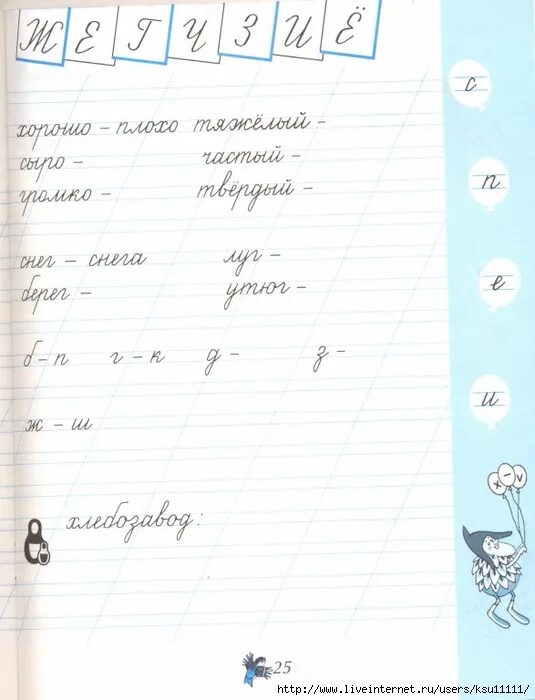 Ж Е Г Ч З И Ё
с
хорошо – плохо тяжёлый –
сыро – частый –
громко – твёрдый –
п
снег – снега луг –
берег – утюг –
е
б – п г – к д – з –
и
ж – ш
х – v
хлебозавод:
25
http://www.liveinternet.ru/users/ksu11111/